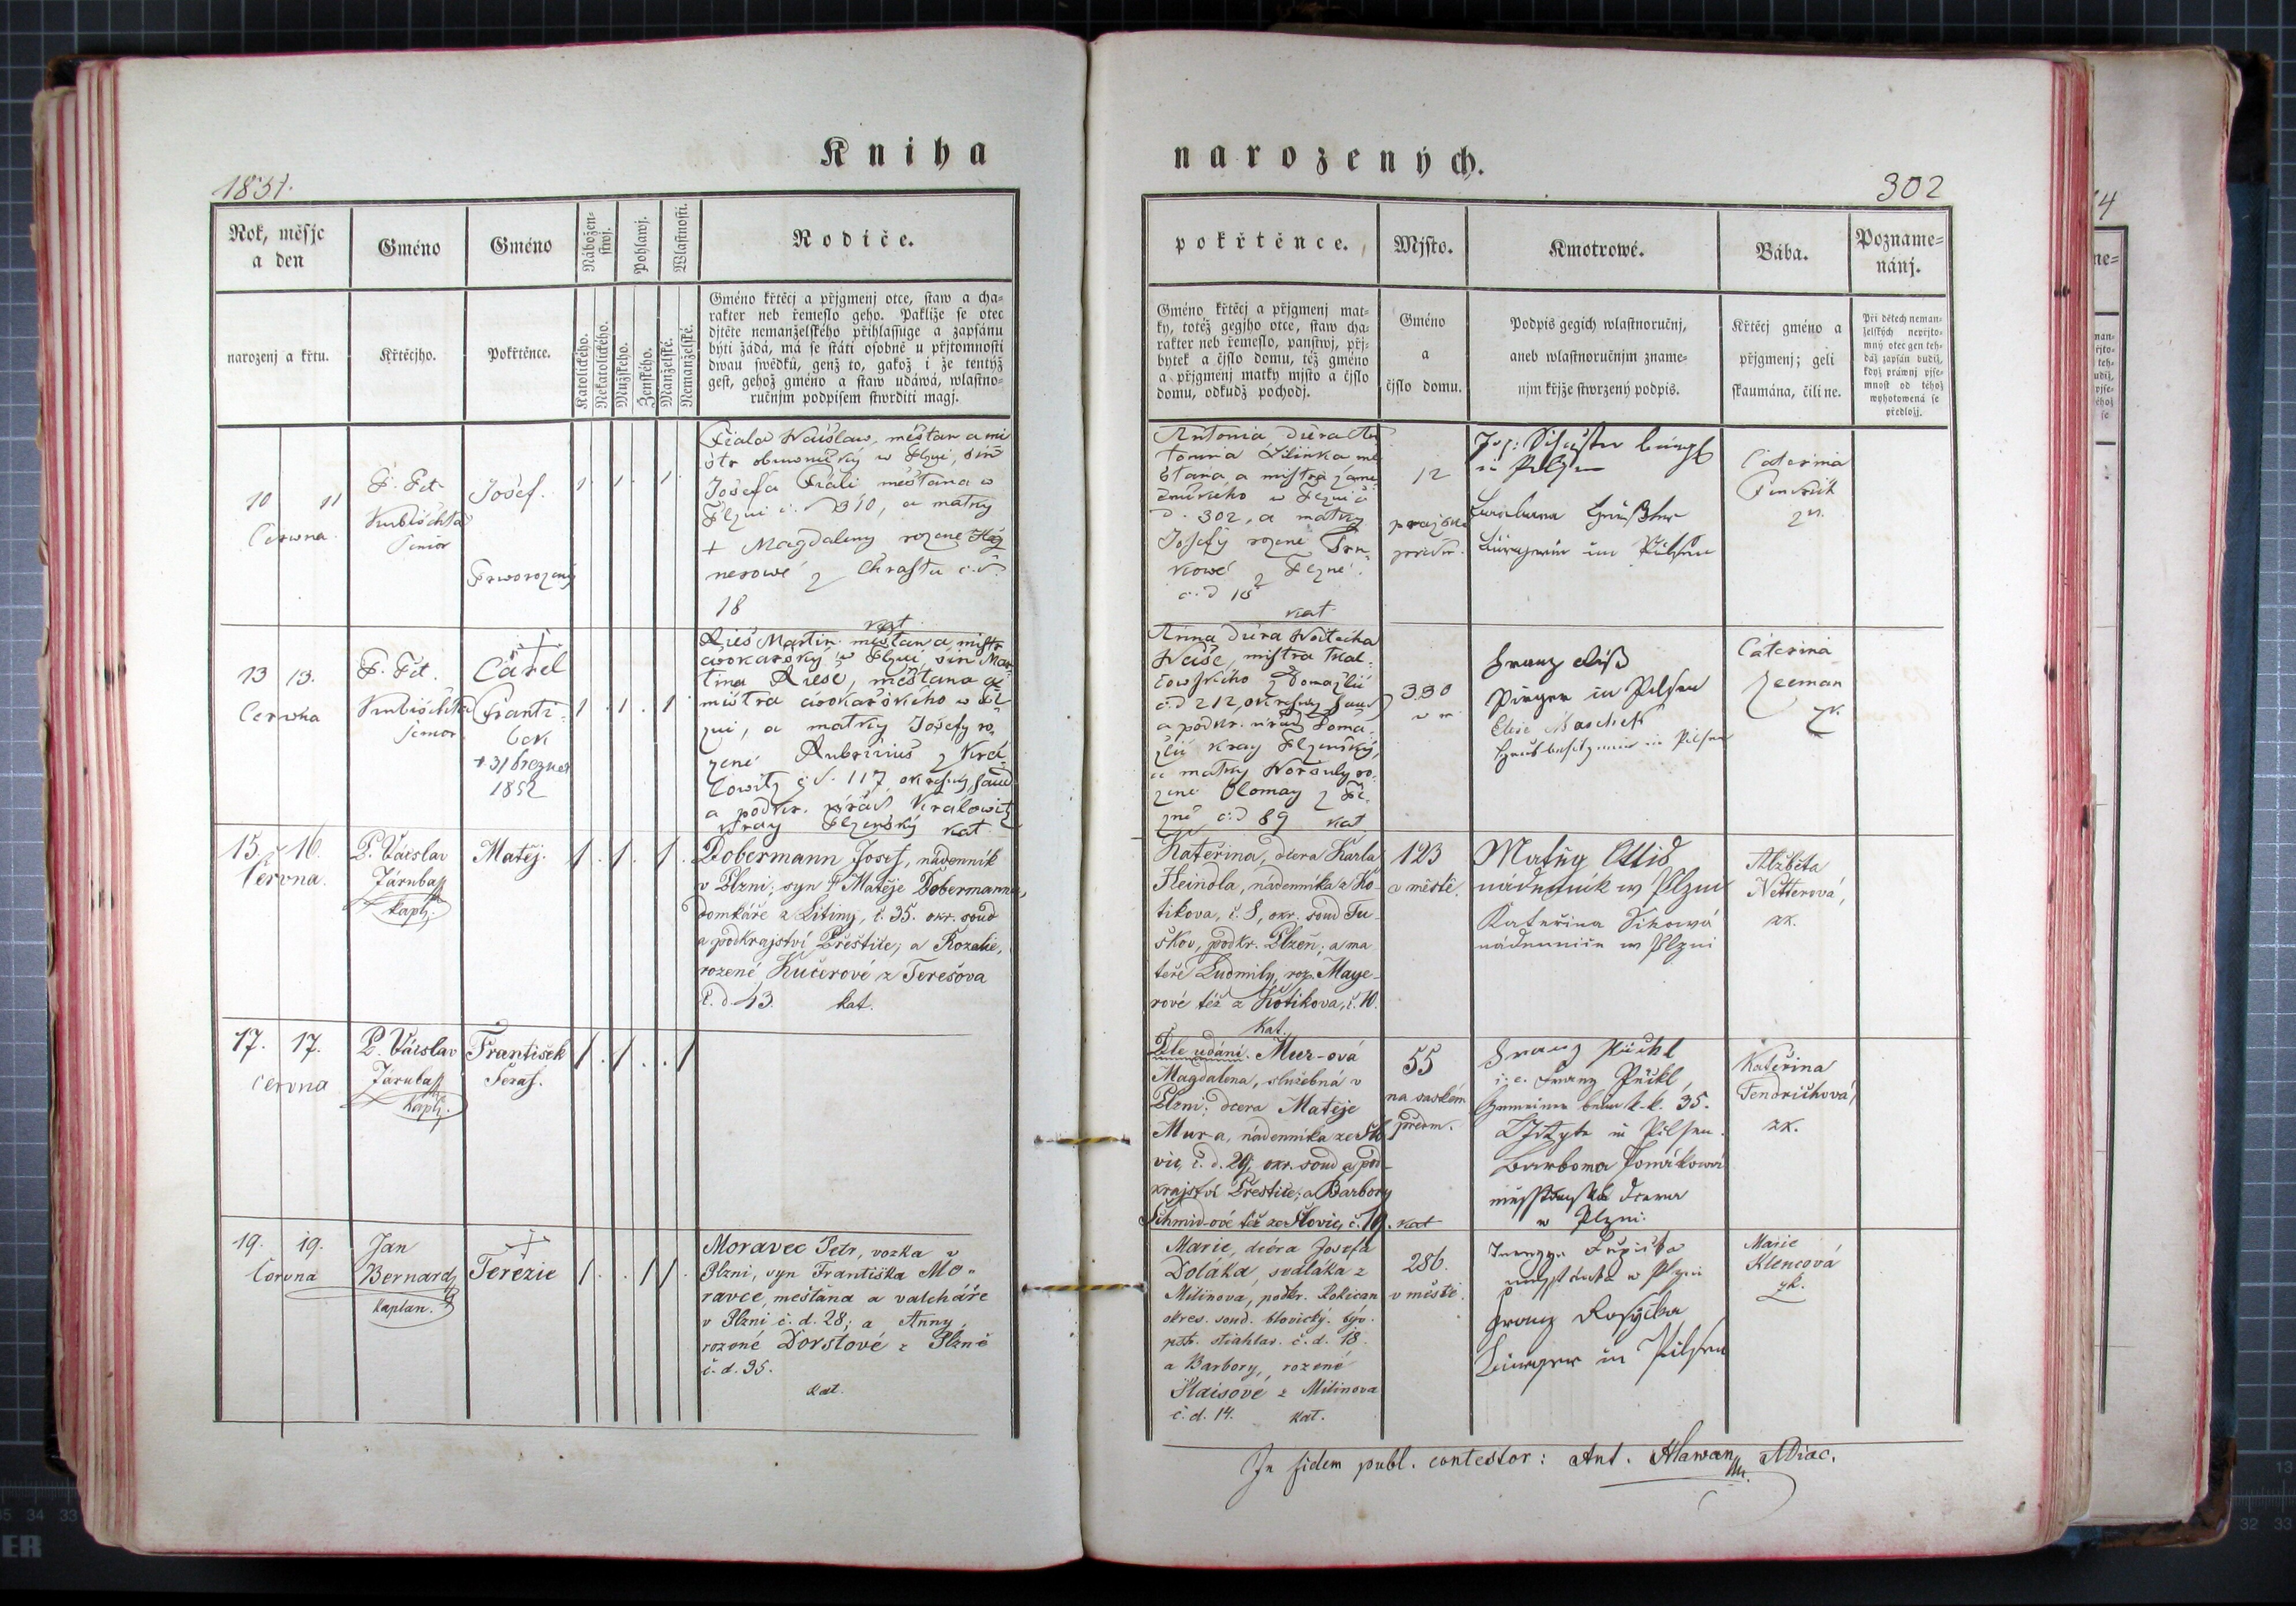 Kniha
narozených.
1851.
302
Rok, měsjc
a den
Gméno
Gméno
Nábožen-
stwj.
Pohlawj.
Wlastnosti.
Rodiče.
narozenj a křtu.
Křtěcjho.
Pokřtěnce.
Katolického.
Nekatolického.
Mužského.
Ženského.
Manželské.
Nemanželské.
Gméno křtěcj a přjgmenj otce, staw a cha-
rakter neb řemeslo geho. Pakliže se otec
djtěte nemanželského přihlassuge a zapsánu
býti žádá, má se státi osobně u přjtomnosti
dwau swědků, genž to, gakož i že tentýž
gest, gehož gméno a staw udáwá, wlastno-
ručnjm podpisem stwrditi magj.
pokřtěnce.
Mjsto.
Kmotrowé.
Bába.
Pozname=
nánj.
Gméno křtěcj a přjgmenj mat-
ky, totéž gegjho otce, staw cha-
rakter neb řemeslo, panstwj, přj-
bytek a čjslo domu, též gméno
a přjgmenj matky mjsto a čjslo
domu, odkudž pocházj.
Gméno
a
čjslo domu.
Podpis gegich wlastnoručnj,
aneb wlastnoručnjm zname-
njm křjže stwrzený podpis.
Křtěcj gméno a
přjgmenj; geli
skaumána, čili ne.
Při dětech neman-
želských nepřjto-
mný otec gen teh-
dáž zapsán budiž,
když práwnj pjse-
mnost od téhož
wyhotowená se
předložj.
10 11
Cerwna
P. Pet
Kubischta
Senior
Josef.
Prworozený
1. 1. 1.
Fiala Waislaw, měštan a mi
str obuwnický w Plzni, sin
Josefa Fiali měštana w
Plzni č. D 310, a matky
+ Magdaleny rozene
nerowé z Chrastu č. D.
18
kat
Antonia dcera An
tonina Silinka mě
štana a mistra
w Plzni č
D. 302, a matky
Josefy rozene
kowé z Plzně
č. D 18
kat
12
předm.
Jos: Schuster bürgl
in Pilsen
Barbara
Bürgerin in Pilsen
Caterina
Fendrich
zk.
13 13.
Cerwna
P. Pet.
Kubischta
Senior
Carel
Franti-
sek
+ 31 Brezna
1852
1. 1. 1
Ries Martin měštan a mistr
cwokarský w Plzni, sin Mar
tina Riese, měštana a
mistra cwokařského w Pl
zni, a matky Josefy ro
zené Aubrinius z Kra
lowitz č. D. 117 okresny saud
a podkr. úřad Kralowitz
Kray Plzenský kat
Anna dcera Woitecha
Weiše, mistra tkal-
cowského z Domažlic
č. D 212, okresny saud
a podkr. úřad Doma-
žlic Kray Plzenský,
a matky Worsuly ro
zené Olomay z Pl-
zně č. D 89 kat
330
w m
Franz Riß
Bürger in Pilsen
Elise Maschek
Hausbesitzerin in Pilsen
Caterina
Zeeman
zk.
15. 16.
Června.
P. Václav
Járuba
kapl.
Matěj.
1. 1. 1.
Dobermann Josef, nádenník
v Plzni; syn + Matěje Dobermanna,
domkáře z Litiny, č. 35. okr. soud
a podkrajství Přeštice; a Rozalie,
rozené Kučerové z Terešova
č. d. 43. kat.
Kateřina, dcera Karla
Heindla, nádenníka z Ko-
tikova, č. 8, okr. soud Tu-
škov, podkr. Plzeň; a ma
teře Ludmily, roz. Maye-
rové též z Kotikova, č. 10.
Kat.
123
v městě.
Matěg Ottis
nádenník w Plzni
Kateřina Sikowá
nádennice w Plzni
Alžběta
Netterová,
zk.
17. 17.
června
P. Václav
Járuba
Kapl.
František
Seraf.
1. 1. . 1
Dle udání. Mur-ová
Magdalena, služebná v
Plzni; dcera Matěje
Mur-a, nádenníka ze Što
vic, č. d. 29, okr. soud a pod-
krajství Přeštice; a Barbory
Schmid-ové též ze Štovic, č. 19. kat
55
na saském
předm.
Franz Püchl
i. e. Franz Püchl
Gemeiner beim k. k. 35.
in Pilsen.
Barbora Tomákowá
měsstanská dcera
w Plzni.
Kateřina
Fendrichová,
zk.
19. 19.
Června
Jan
Bernard
Kaplan.
Terezie
1. . 1 1.
Moravec Petr, vozka v
Plzni, syn Františka Mo-
ravce, měštana a valcháře
v Plzni č. d. 28; a Anny,
rozené Dorstové z Plzně
č. d. 35.
kat.
Marie, dcéra Josefa
Doláka, sedláka z
Milinova, podkr. Rokican
okres. soud. blovický. býv.
pst. stiahlav. č. d. 18.
a Barbory, rozené
Hlaisové z Milinova
č. d. 14. kat.
286.
v městě.
w Plzni
Franz Rosýcka
Bürger in Pilsen
Marie
Klencová
zk.
In fidem publ. contestor: Ant. Hlawan ADiac.